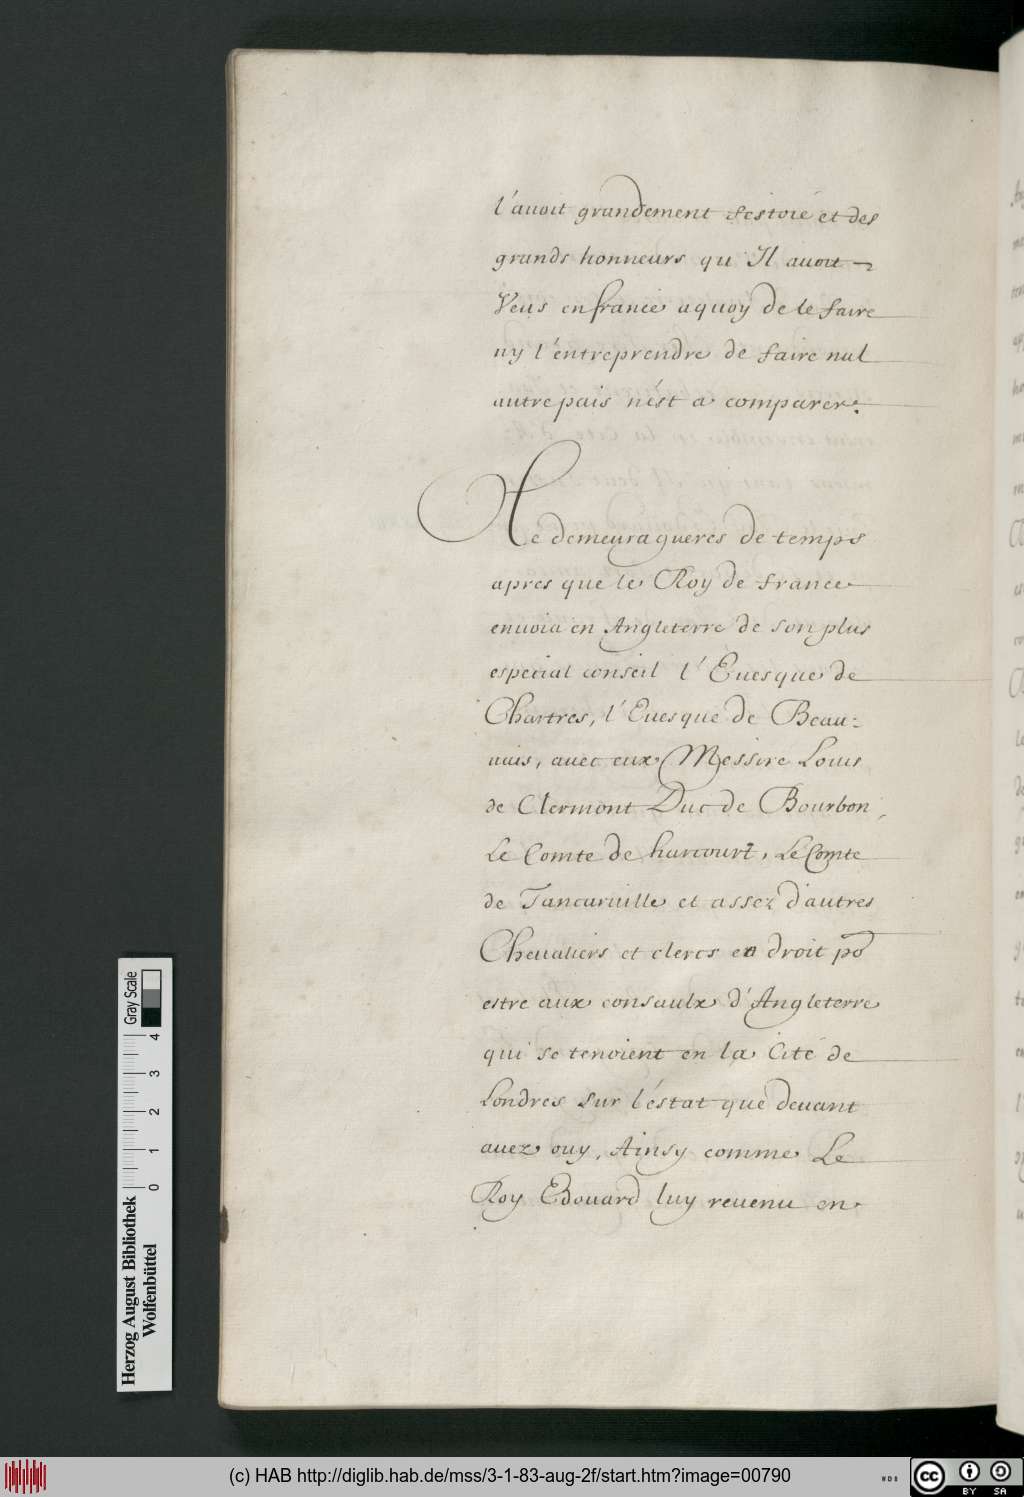 l'avoit grandement festoié et des
grands honneurs qu'Il avoit
Veus en france aquoy de le faire
ny l'entreprendre de faire nul
autre pais n'ést a comparer.
Ne demeura gueres de temps
apres que le Roy de france
enuoia en Angleterre de son plus
especial conseil l'Euesque de
Chartres, l'Euesque de Beau-
uais, auec eux Messire Louis
de Clermont Duc de Bourbon,
Le Comte de harcourt, Le Comte
de Tancaruille et assez d'autres
Cheualiers et clercs en droit po
estre aux consaulx d'Angleterre
qui se tenoient en la Cité de
Londres sur l'éstat que deuant
auez ouy, Ainsy comme Le
Roy Edouard luy reuenu en
Gray Scale
0 1 2 3 4
Herzog August Bibliothek
Wolfenbüttel
(c) HAB http://diglib.hab.de/mss/3-1-83-aug-2f/start.htm?image=00790
WDB
cc BY SA